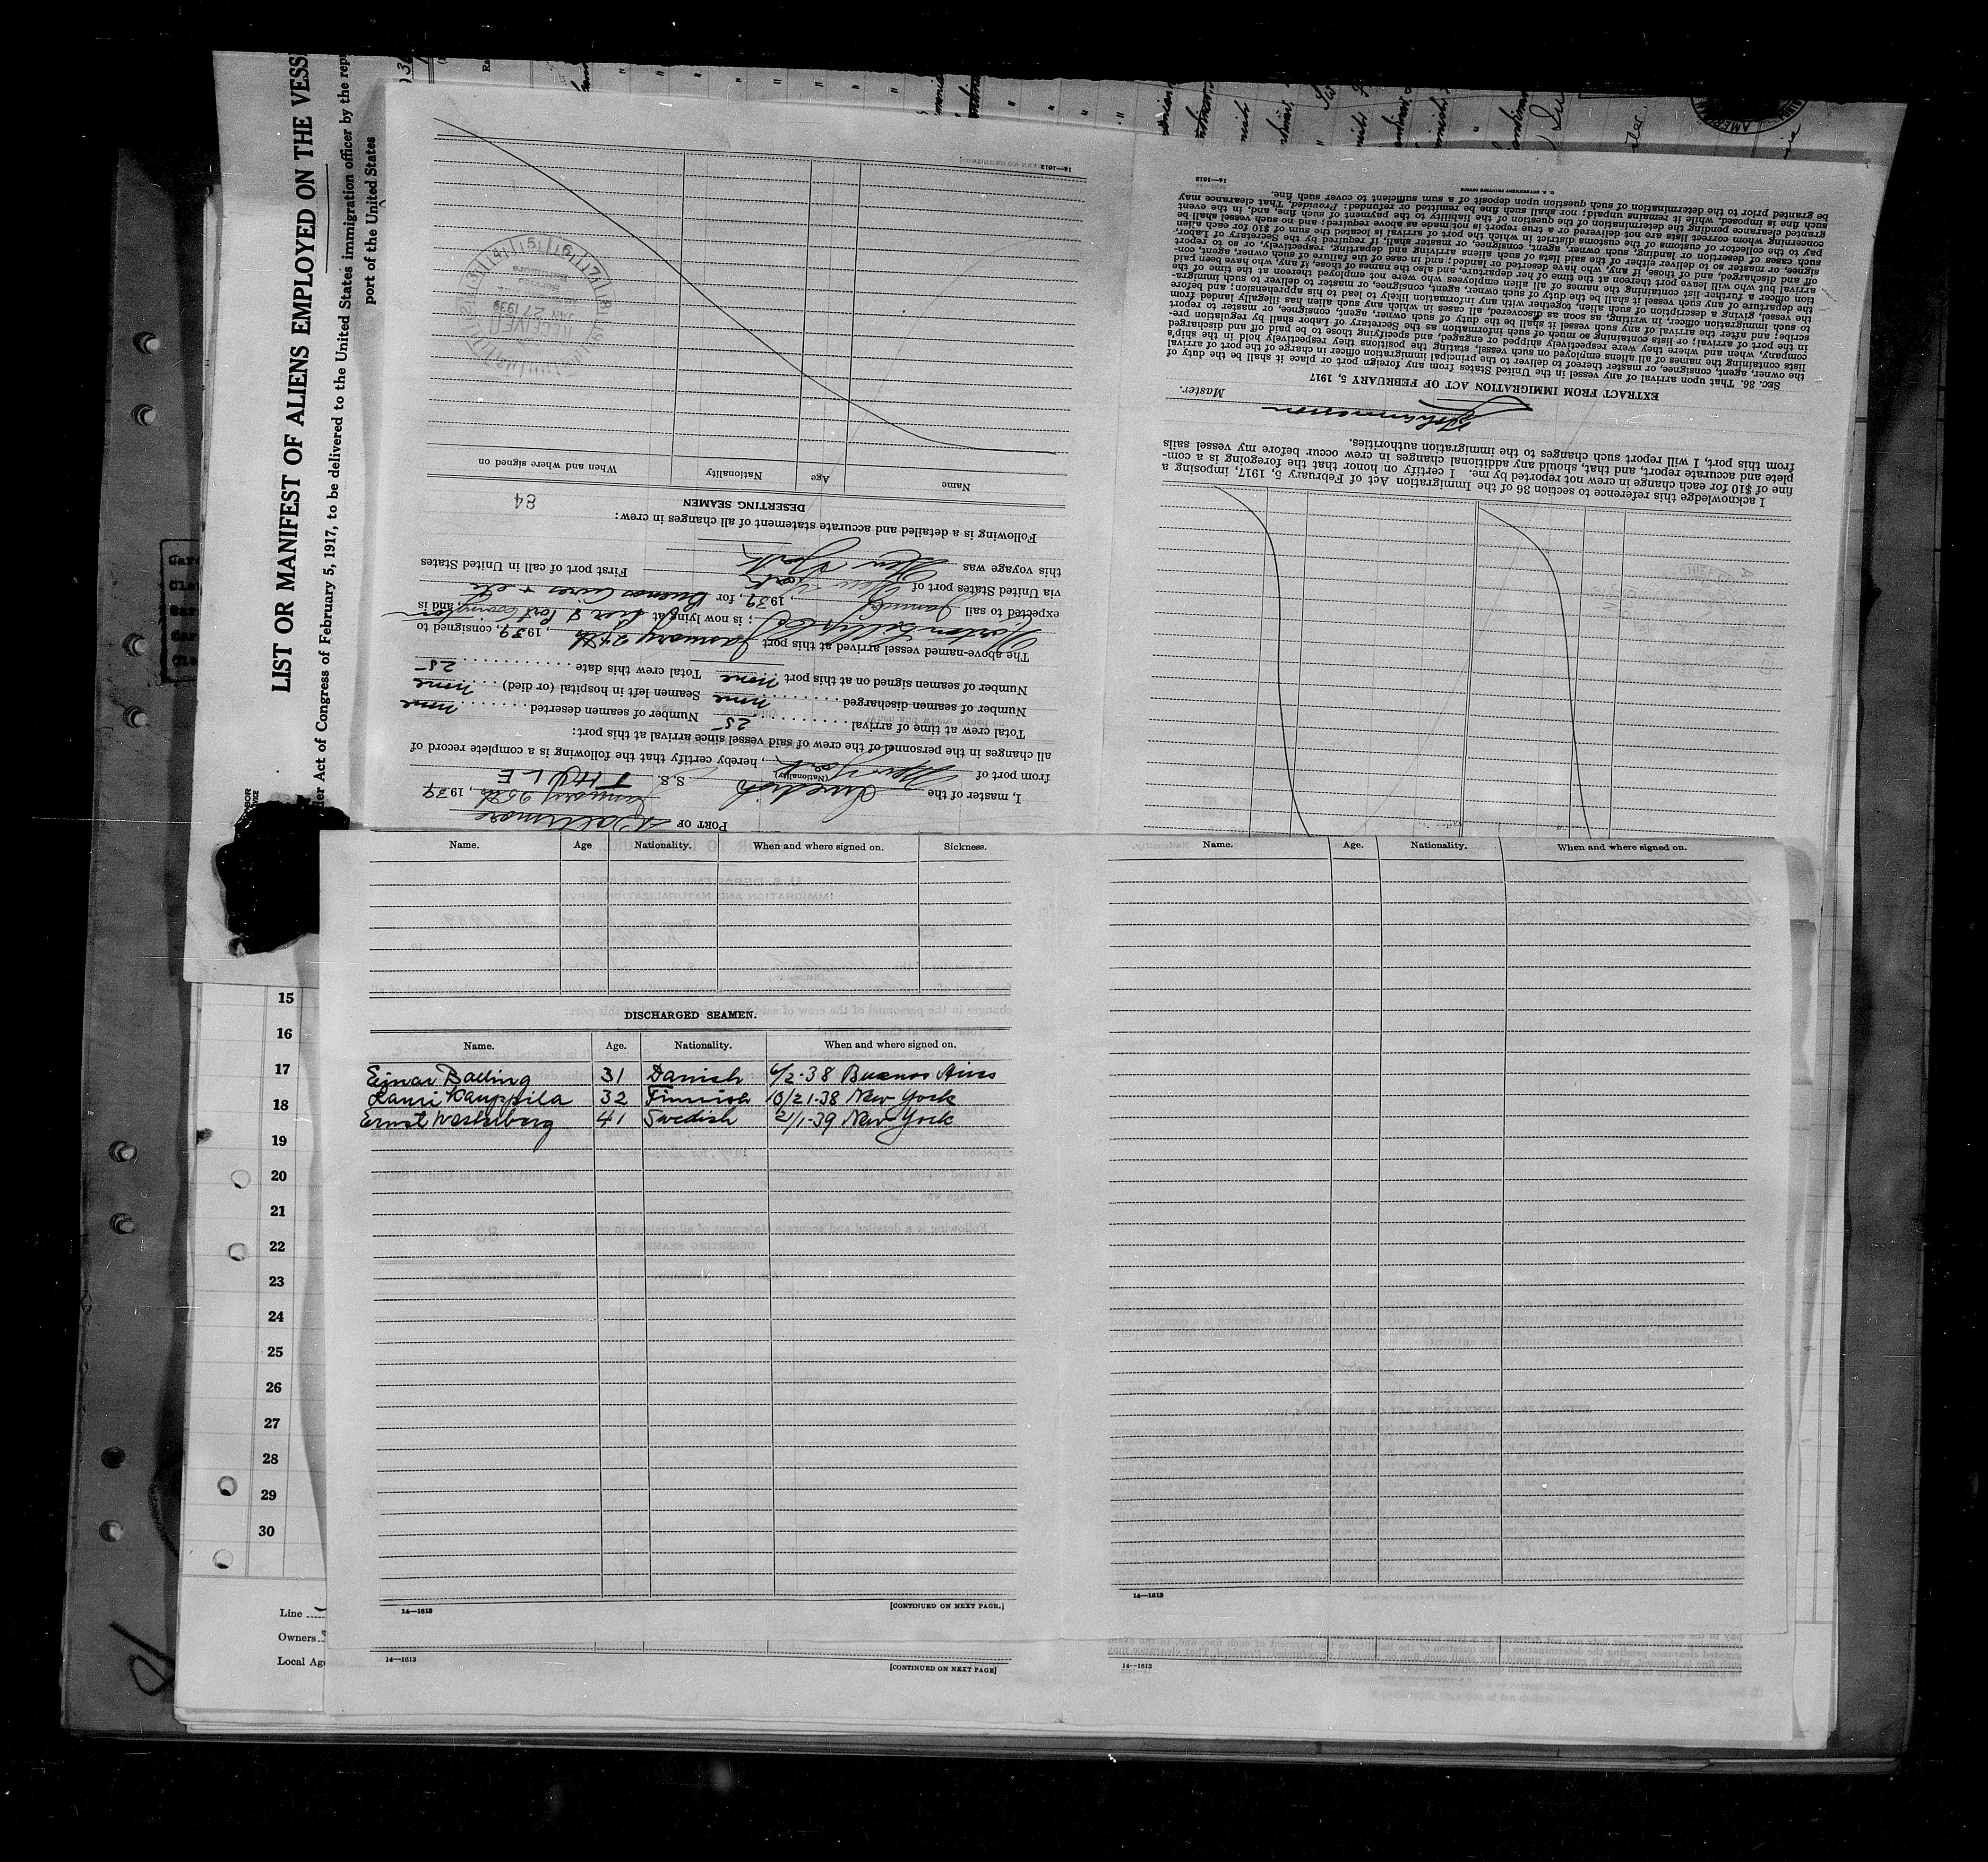 LIST OR MANIFEST OF ALIENS EMPLOYED ON THE VESS
der Act of Congress of February 5, 1917, to be delivered to the United States immigration officer by the rep
port of the United States
PORT OF Baltimore
January 25th, 1939
I, master of the Swedish S.S. THULE
(Nationality)
from port of New York, hereby certify that the following is a complete record of
all changes in the personnel of the crew of said vessel since arrival at this port:
Total crew at time of arrival 25 Number of seamen deserted none
Number of seamen discharged none Seamen left in hospital (or died) none
Number of seamen signed on at this port none Total crew this date 25
The above-named vessel arrived at this port January 24th, 1939, consigned to
Norton Lilly & Co; is now lying at Pier 8 Port Covington, and is
expected to sail 1939, for Buenos Aires + etc
via United States port of New York First port of call in United States
this voyage was New York
Following is a detailed and accurate statement of all changes in crew:
84
DESERTING SEAMEN
Name Age Nationality When and where signed on
RECEIVED
JAN 27 1939
Baltimore
14—1613
I acknowledge this reference to section 36 of the Immigration Act of February 5, 1917, imposing a
fine of $10 for each change in crew not reported by me. I certify on honor that the foregoing is a com-
plete and accurate report, and that, should any additional changes in crew occur before my vessel sails
from this port, I will report such changes to the immigration authorities.
Master.
EXTRACT FROM IMMIGRATION ACT OF FEBRUARY 5, 1917
SEC. 36. That upon arrival of any vessel in the United States from any foreign port or place it shall be the duty of
the owner, agent, consignee, or master thereof to deliver to the principal immigration officer in charge of the port of arrival
lists containing the names of all aliens employed on such vessel, stating the positions they respectively hold in the ship
company, when and where they were respectively shipped or engaged, and specifying those to be paid off and discharged
in the port of arrival; or lists containing so much of such information as the Secretary of Labor shall by regulation pre-
scribe; and after the arrival of any such vessel it shall be the duty of such owner, agent, consignee, or master to report
to such immigration officer, in writing, as soon as discovered, all cases in which any such alien has illegally landed from
the vessel, giving a description of such alien, together with any information likely to lead to his apprehension; and before
the departure of any such vessel it shall be the duty of such owner, agent, consignee, or master to deliver to such immigra-
tion officer a further list containing the names of all alien employees who were not employed thereon at the time of the
arrival but who will leave port thereon at the time of her departure, and also the names of those, if any, who have been paid
off and discharged, and of those, if any, who have deserted or landed; and in case of the failure of such owner, agent, con-
signee, or master so to deliver either of the said lists of such aliens arriving and departing, respectively, or so to report
such cases of desertion or landing, such owner, agent, consignee, or master, shall, if required by the Secretary of Labor,
pay to the collector of customs of the customs district in which the port of arrival is located the sum of $10 for each alien
concerning whom correct lists are not delivered or a true report is not made as above required; and no such vessel shall be
granted clearance pending the determination of the question of the liability to the payment of such fine, and, in the event
such fine is imposed, while it remains unpaid; nor shall such fine be remitted or refunded: Provided, That clearance may
be granted prior to the determination of such question upon deposit of a sum sufficient to cover such fine.
U. S. GOVERNMENT PRINTING OFFICE
14—1613
Name. Age Nationality. When and where signed on. Sickness.
DISCHARGED SEAMEN.
Name. Age. Nationality. When and where signed on.
Ejnar Balling 31 Danish 6/2-38 Buenos Aires
Lauri Kauppila 32 Finnish 10/21-38 New York
Ernst Westerberg 41 Swedish 21/1-39 New York
14—1613 [CONTINUED ON NEXT PAGE.]
14—1613 [CONTINUED ON NEXT PAGE]
Name. Age. Nationality. When and where signed on.
14—1613
14—1613
15
16
17
18
19
20
21
22
23
24
25
26
27
28
29
30
Line
Owners
Local Age